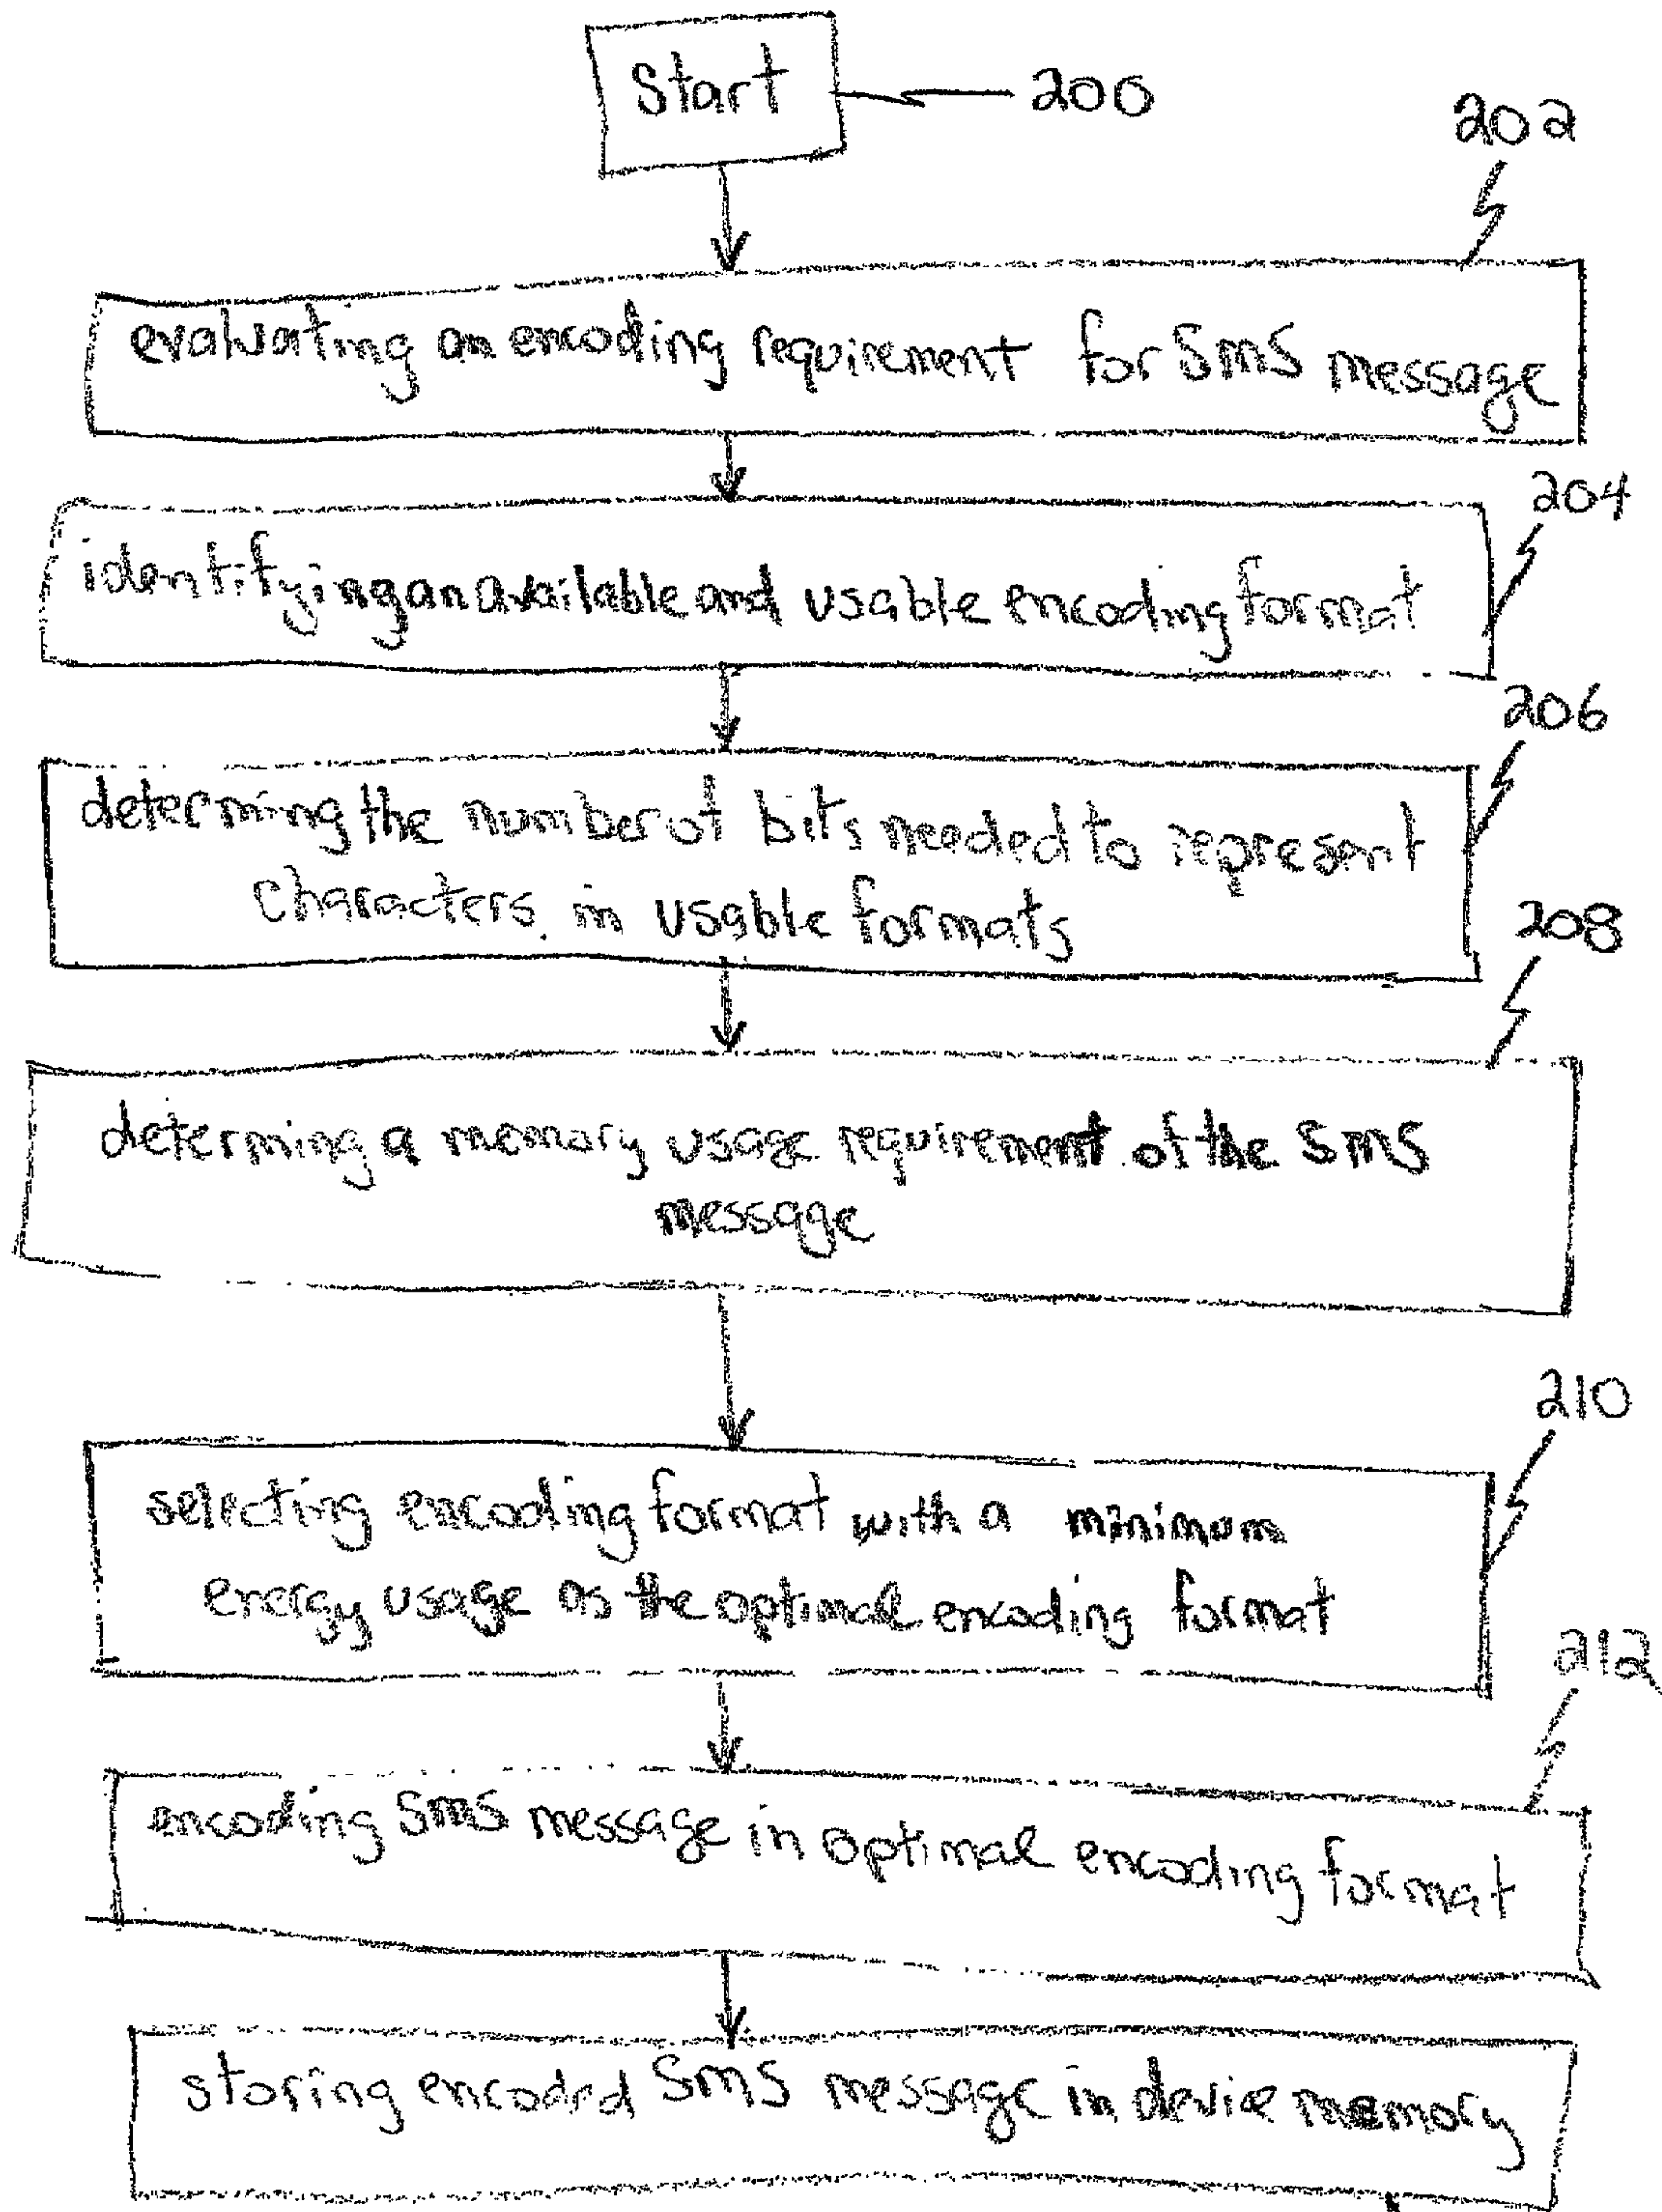 Start
200
202
evaluating an encoding requirement for SMS message
204
identifying an available and usable encoding format
206
determing the number of bits needed to represent
characters in usable formats
208
determing a memory usage requirement of the SMS
message
210
selecting encoding format with a minimum
energy usage as the optimal encoding format
212
encoding SMS message in optimal encoding format
storing encoded SMS message in device memory